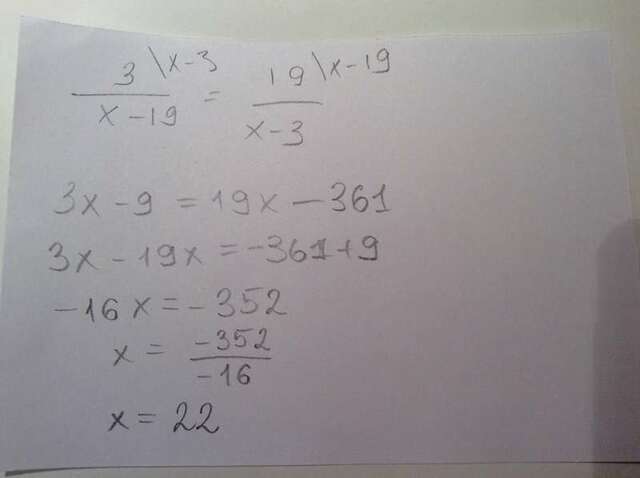 3\x-3 / x-19 = 19\x-19 / x-3
3x - 9 = 19x - 361
3x - 19x = -361+9
-16x = -352
x = -352 / -16
x = 22